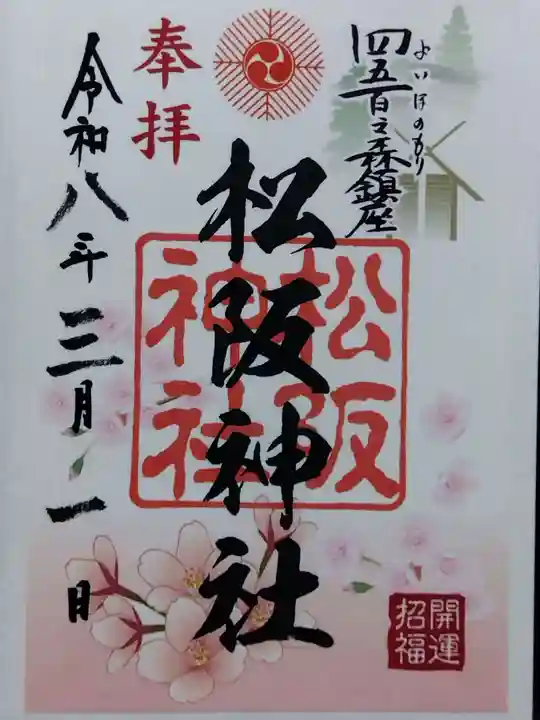 四五百之森鎮座
よいほのもり
奉拝
松阪神社
松阪
神社
令和八年三月一日
開運
招福